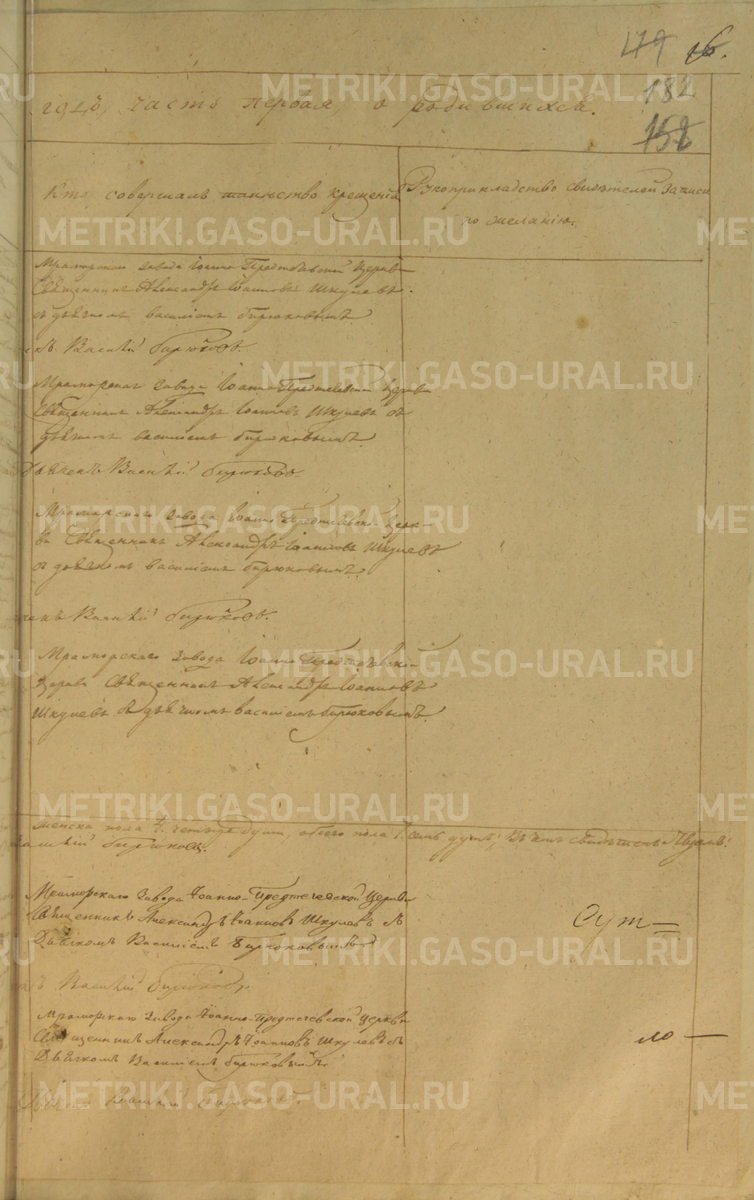 179 16.
182
158
годъ, часть первая, о родившихся.
Кто совершалъ таинство крещенія
Рукоприкладство свидѣтелей записи
по желанію.
Мраморскаго завода Іоанно Предтечевской Церкви
Священникъ Александръ Іоанновъ Шкулевъ
съ дьячкомъ Василіемъ Бирюковымъ
Василій Бирюковъ.
Мраморскаго завода Іоанно Предтечевской церкви
Священникъ Александръ Іоанновъ Шкулевъ съ
дьячкомъ Василіемъ Бирюковымъ.
Василій Бирюковъ
Мраморскаго завода Іоанно Предтечевской Церк-
ви Священникъ Александръ Іоанновъ Шкулевъ
съ дьячкомъ Василіемъ Бирюковымъ.
Василій Бирюковъ.
Мраморскаго завода Іоанно Предтечевской
Церкви Священникъ Александръ Іоанновъ
Шкулевъ съ дьячкомъ Василіемъ Бирюковымъ.
женска пола 4. четыре души, обоего пола душъ;
Бирюковъ.
Мраморскаго Завода Іоанно-Предтечевской Церкви
Священникъ Александръ Іоанновъ Шкулевъ съ
Дьячкомъ Василіемъ Бирюковымъ
Сут
Василій Бирюковъ,
Мраморскаго Завода Іоанно-Предтечевской Церкви
Священникъ Александръ Іоанновъ Шкулевъ съ
Дьячкомъ Василіемъ Бирюковымъ.
ло —
METRIKI.GASO-URAL.RU